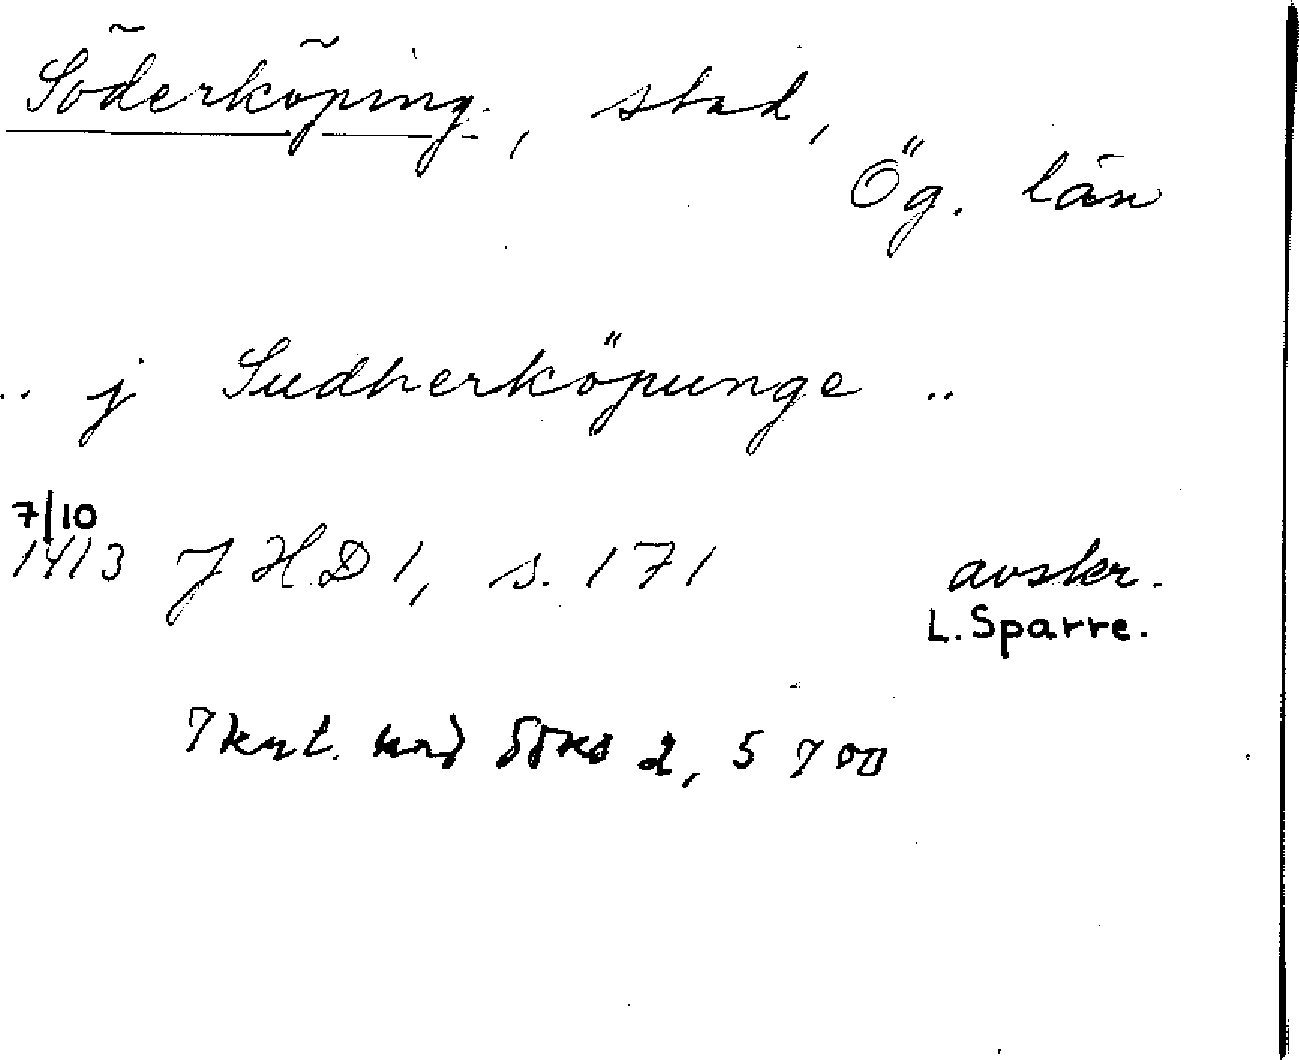 Söderköping, stad,
Ög. län
.. j Sudherköpunge ..
7/10
1413 JHD 1, s. 171 avskr.
L. Sparre.
2, s 700